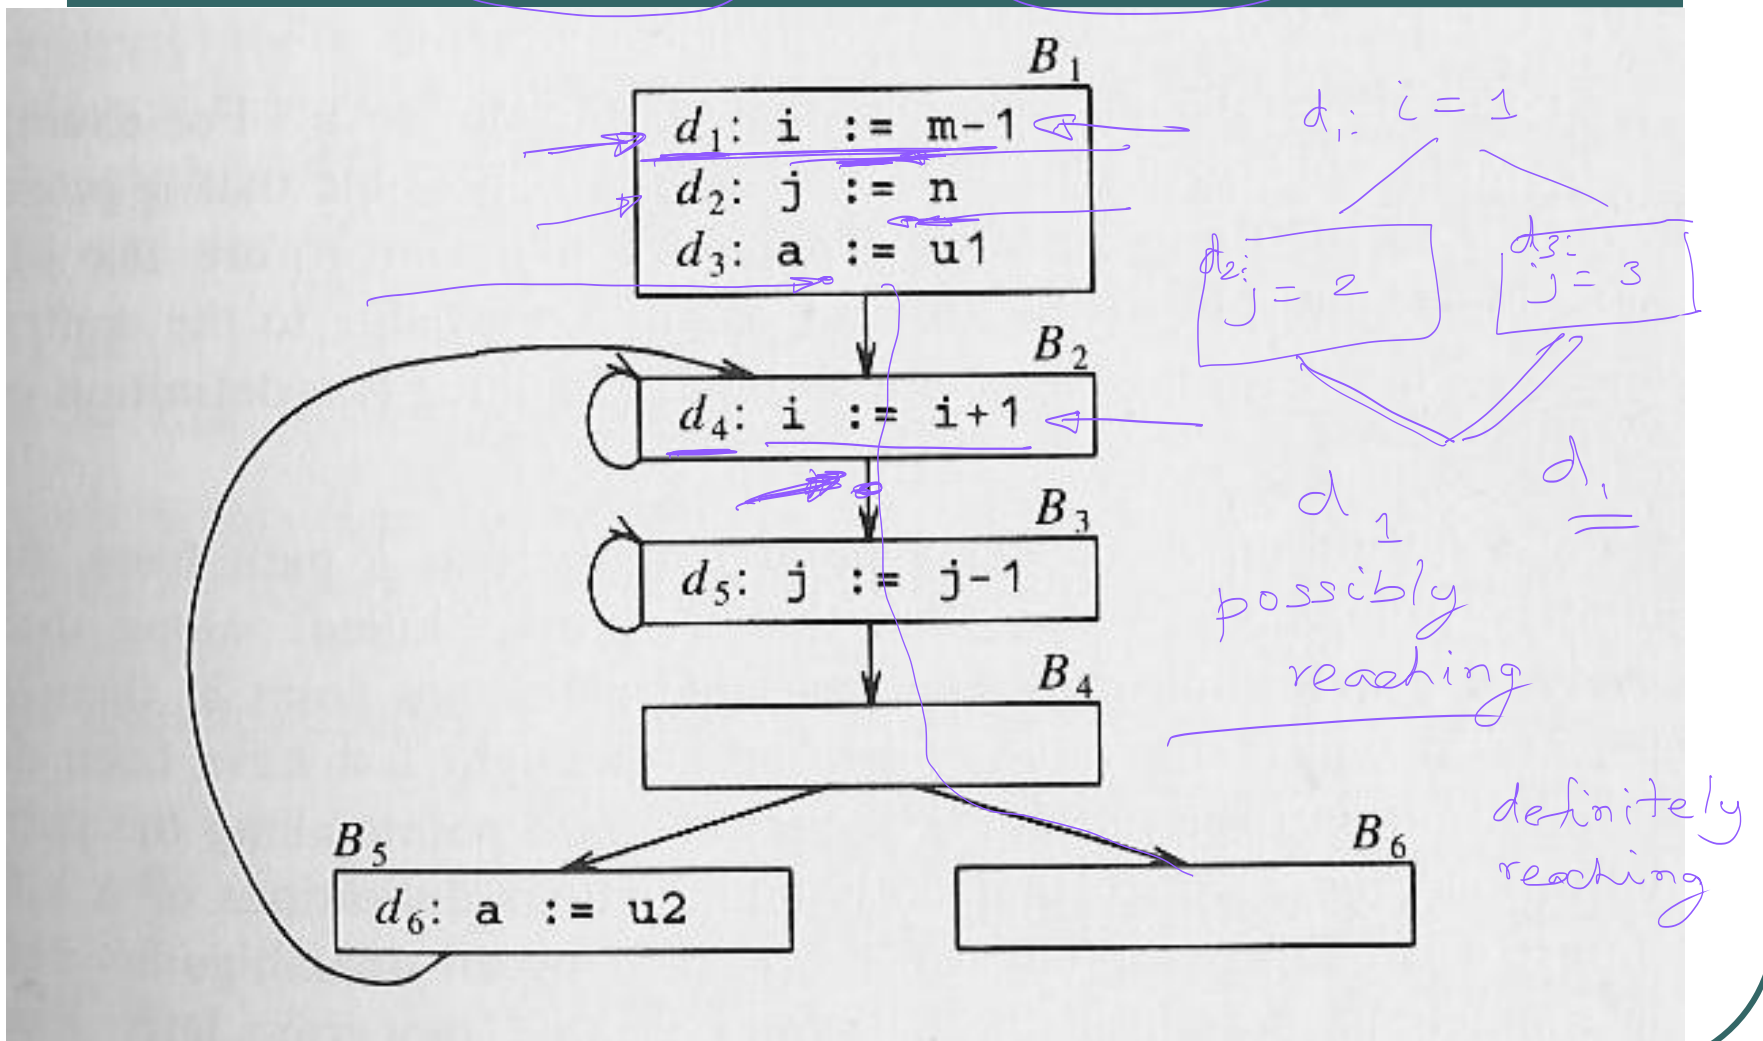 B₁
d₁: i := m-1
d₂: j := n
d₃: a := u1
B₂
d₄: i := i+1
B₃
d₅: j := j-1
B₄
B₅
d₆: a := u2
B₆
d₁: i = 1
d₂: j = 2
d₃: j = 3
d₁
d₁
possibly
reaching
definitely
reaching